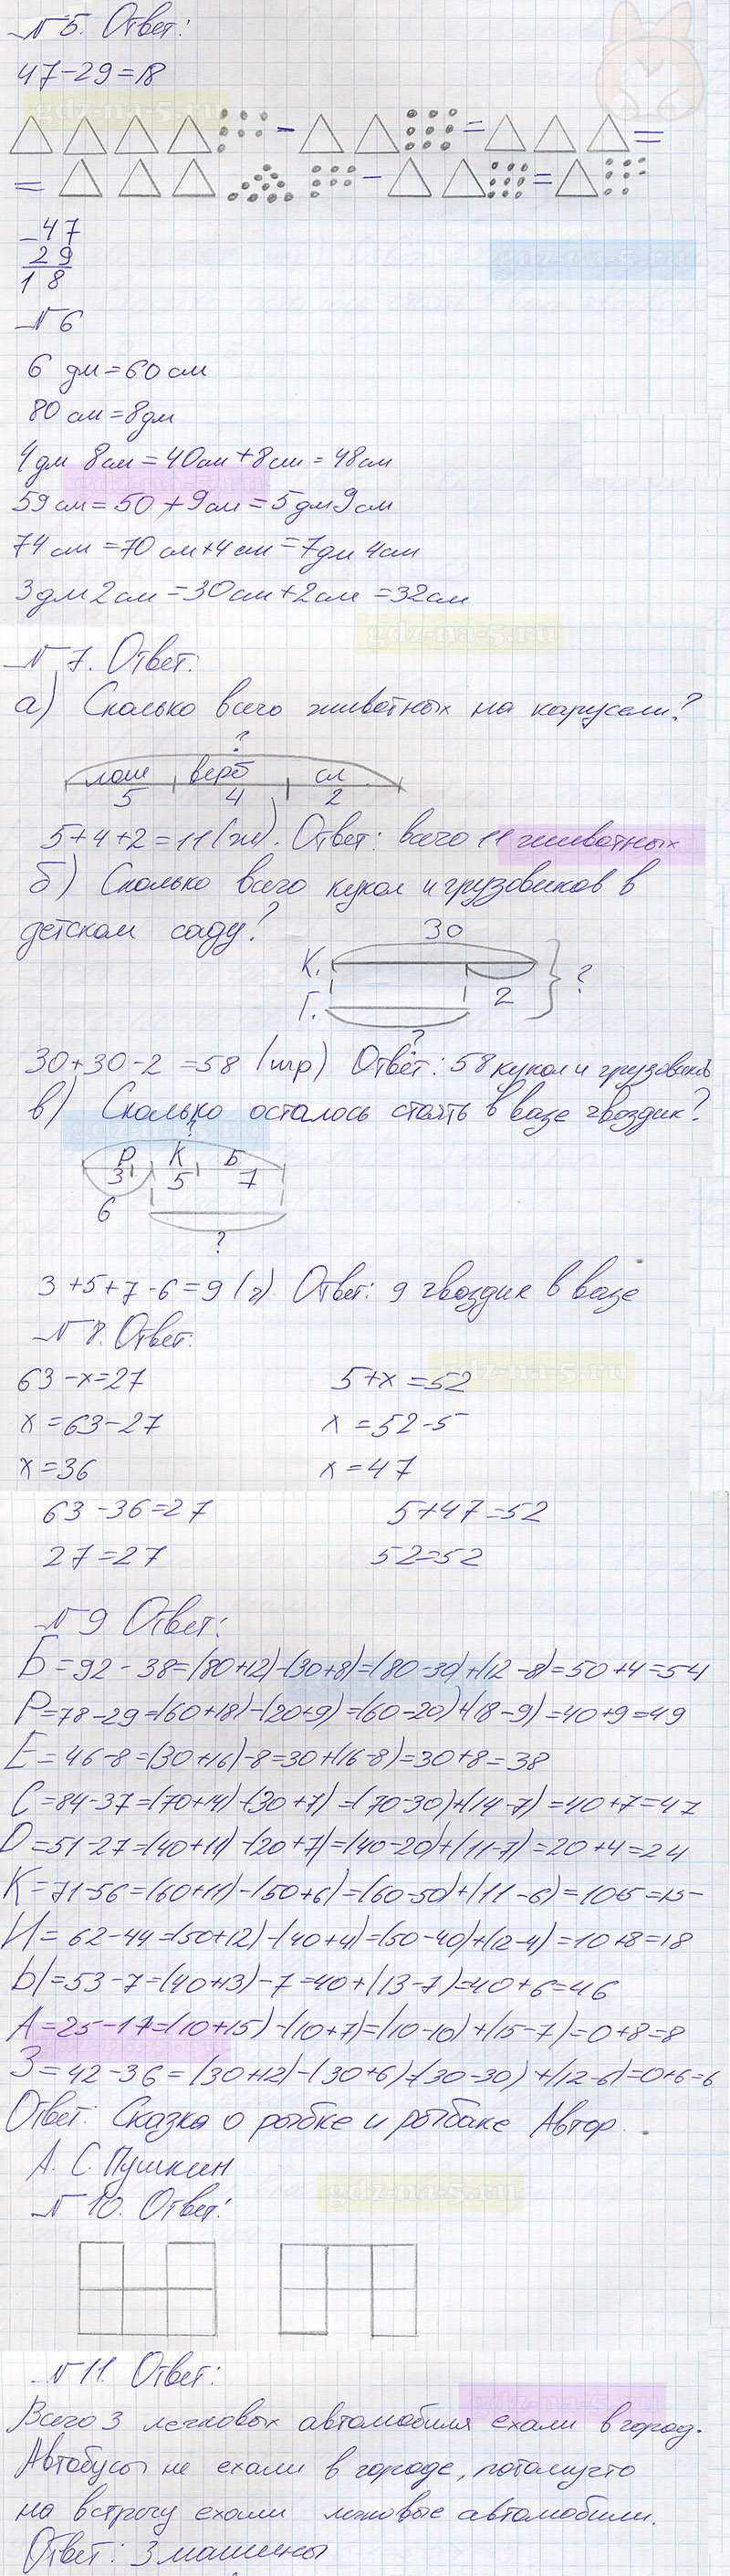 №5. Ответ:
47-29=18
gdz-na-5.ru
- = =
= - =
-47
29
18
№6
6 дм=60см
80 см=8дм
4дм 8см=40см+8см=48см
59см=50+9см=5дм9см
74см=70см+4см=7дм 4см
3дм2см=30см+2см=32см
gdz-na-5.ru
№7. Ответ:
а) Сколько всего животных на карусели?
?
лош верб сл
5 4 2
5+4+2=11(ж). Ответ: всего 11 животных
б) Сколько всего кукол и грузовиков в
детском саду?
30
К.
2 ?
Г.
?
30+30-2=58 (игр) Ответ: 58 кукол и грузовиков
в) Сколько осталось стоять в вазе гвоздик?
?
Р К Б
3 5 7
6
?
3+5+7-6=9(г) Ответ: 9 гвоздик в вазе
№8. Ответ:
63-x=27 5+x=52
x=63-27 x=52-5
x=36 x=47
63-36=27 5+47=52
27=27 52=52
№9 Ответ:
Б=92-38=(80+12)-(30+8)=(80-30)+(12-8)=50+4=54
Р=78-29=(60+18)-(20+9)=(60-20)+(18-9)=40+9=49
Е=46-8=(30+16)-8=30+(16-8)=30+8=38
С=84-37=(70+14)-(30+7)=(70-30)+(14-7)=40+7=47
О=51-27=(40+11)-(20+7)=(40-20)+(11-7)=20+4=24
К=71-56=(60+11)-(50+6)=(60-50)+(11-6)=10+5=15
И=62-44=(50+12)-(40+4)=(50-40)+(12-4)=10+8=18
Ы=53-7=(40+13)-7=40+(13-7)=40+6=46
А=25-17=(10+15)-(10+7)=(10-10)+(15-7)=0+8=8
З=42-36=(30+12)-(30+6)=(30-30)+(12-6)=0+6=6
Ответ: Сказка о рыбке и рыбаке Автор
А. С. Пушкин
gdz-na-5.ru
№10. Ответ:
№11. Ответ:
Всего 3 легковых автомобиля ехали в город.
Автобусы не ехали в городе, потомучто
на встречу ехали легковые автомобили.
Ответ: 3 машины